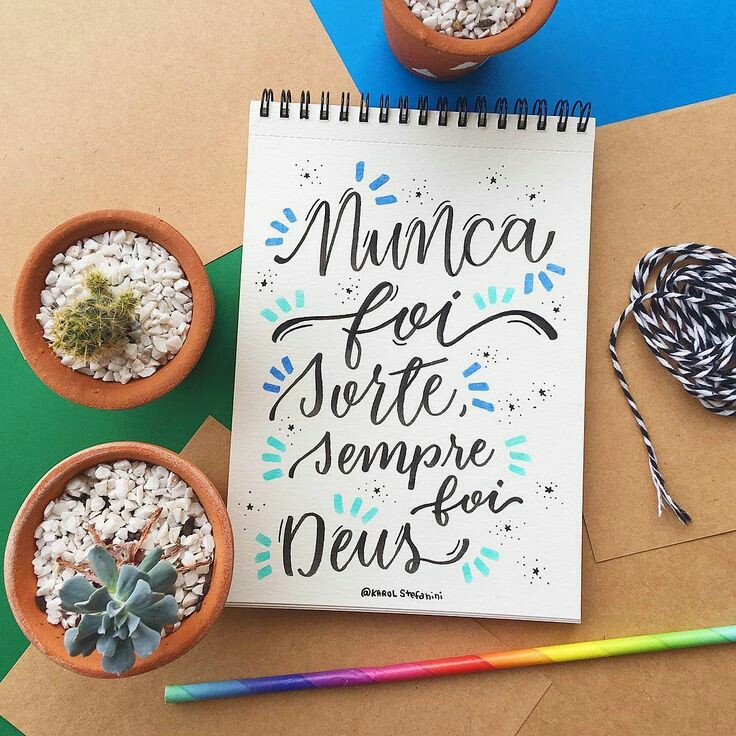 Nunca
foi
sorte,
sempre
foi
Deus
@KAROL Stefanini